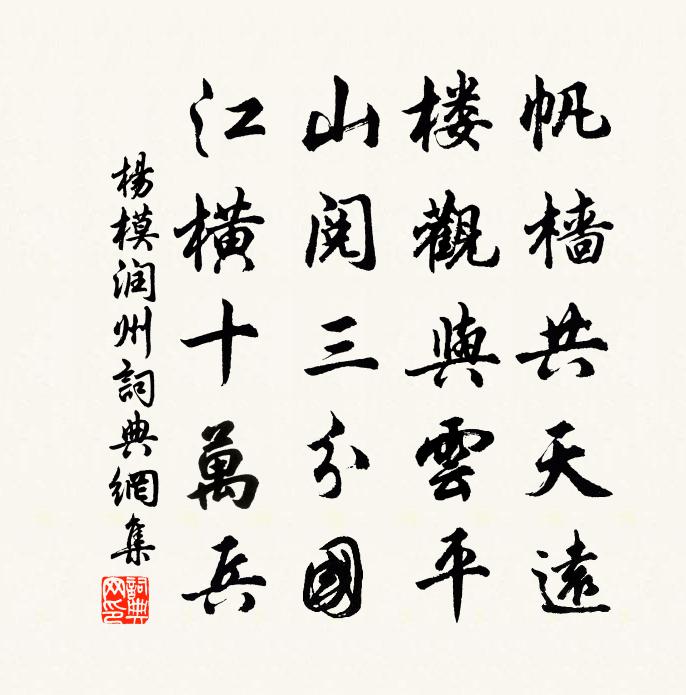 帆樯共天遠
楼觀與雲平
山閱三分國
江横十萬兵
楊模润州詞典網集
詞典網印